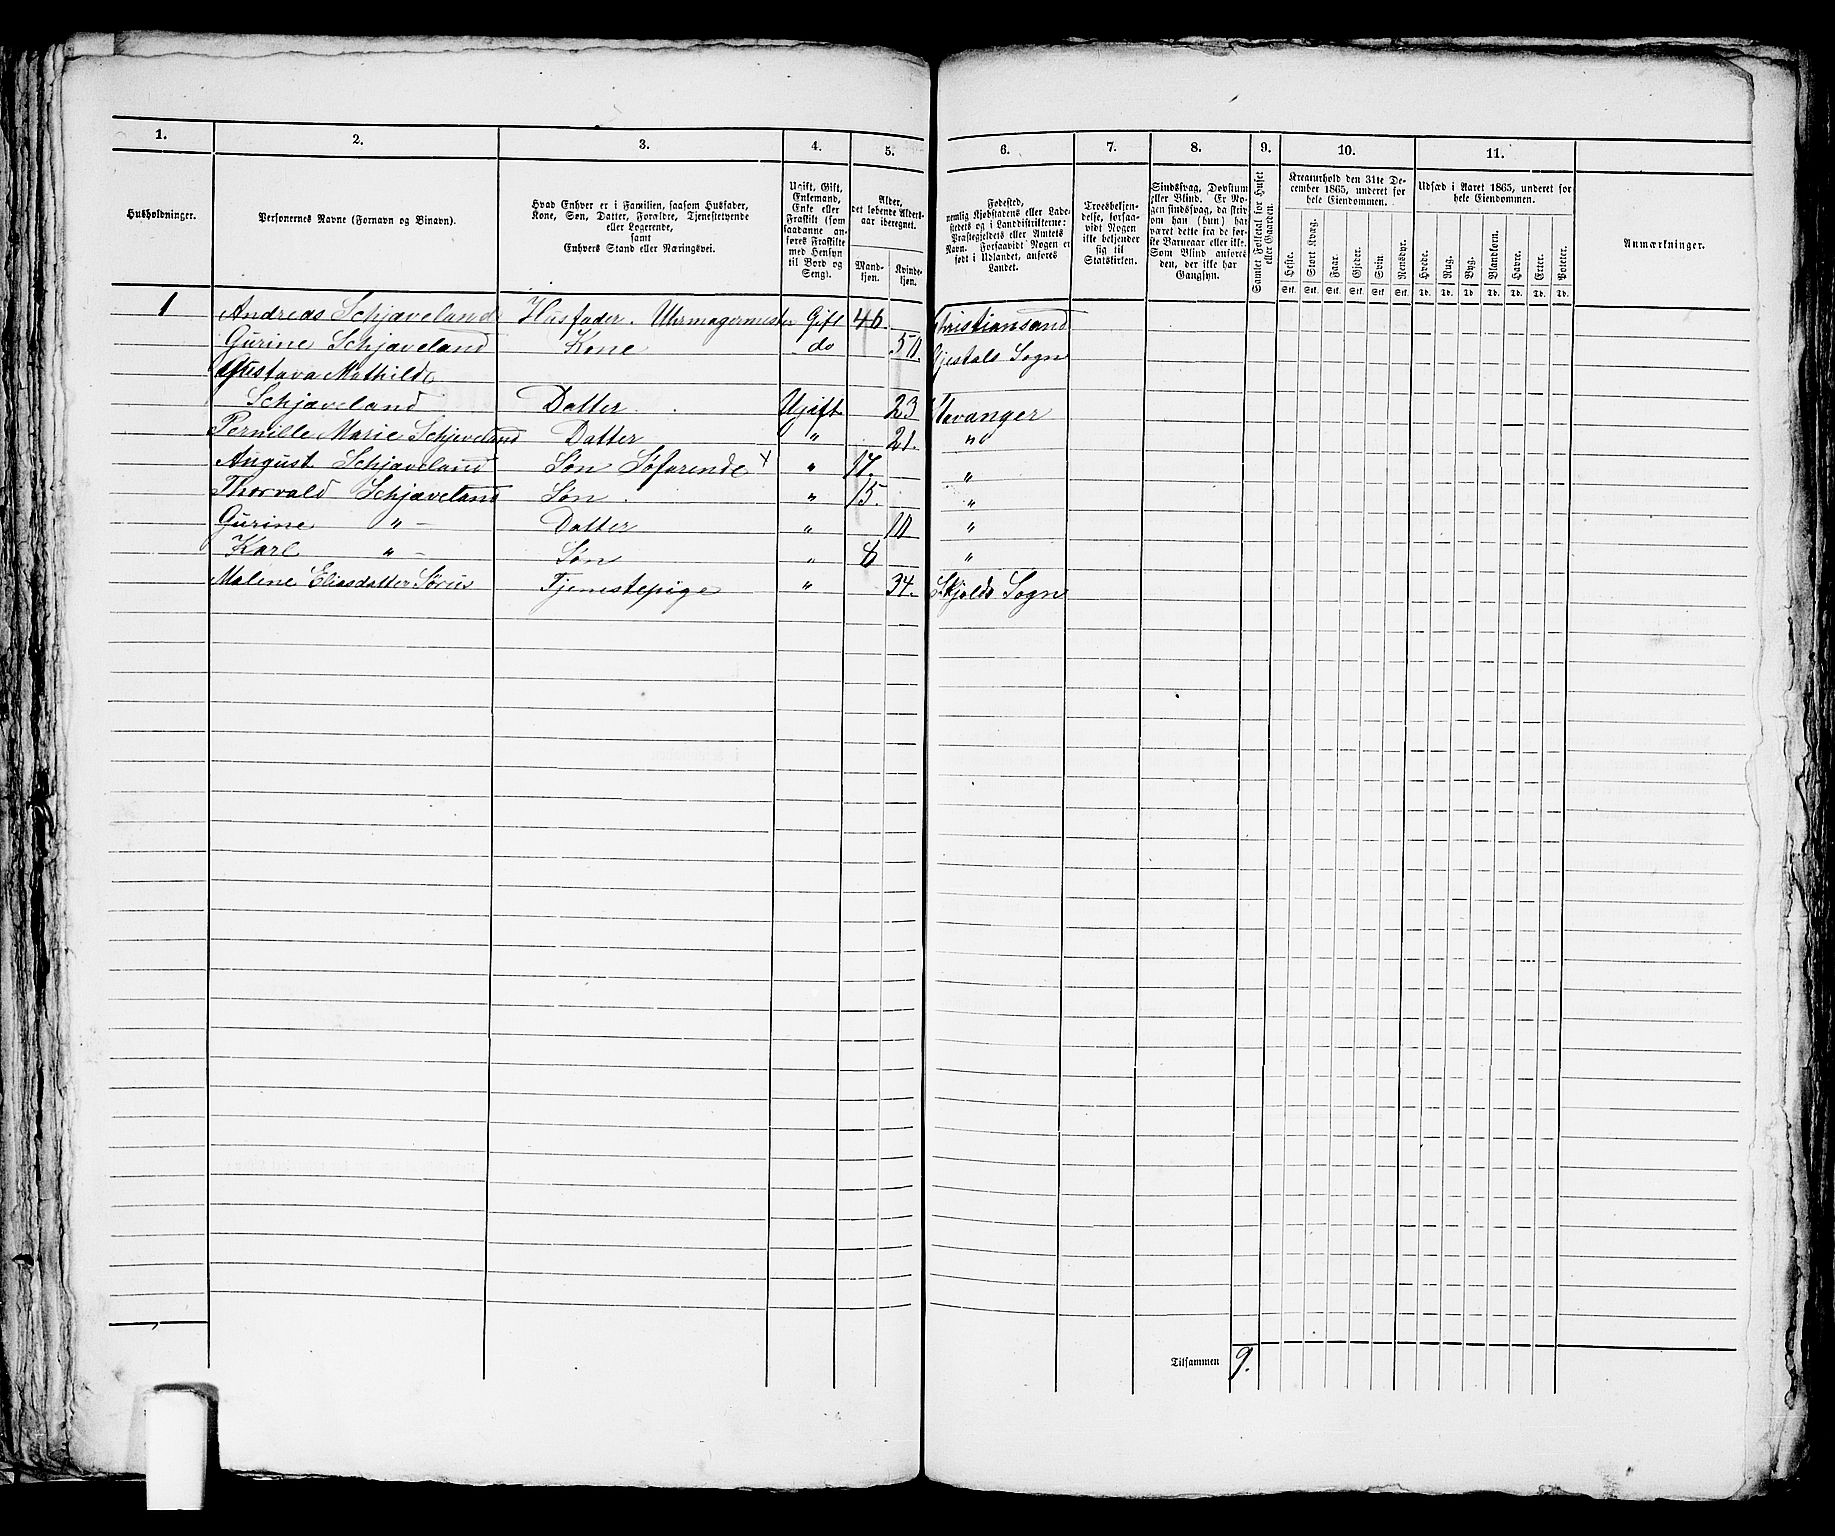 1. 2. 3. 4. 5. 6. 7. 8. 9. 10. 11.
Husholdninger.
Personernes Navne (Fornavn og Binavn).
Hvad Enhver er i Familien, saasom Husfader,
Kone, Søn, Datter, Forældre, Tjenestetyende
eller Logerende,
samt
Enhvers Stand eller Næringsvei.
Ugift, Gift,
Enkemand,
Enke eller
Fraskilt (som
saadanne an-
føres Fraskilte
med Hensyn
til Bord og
Seng).
Alder,
det løbende Alders-
aar iberegnet.
Mand-
kjøn.
Kvinde-
kjøn.
Fødested,
nemlig Kjøbstadens eller Lade-
stedets og i Landdistrikterne:
Præstegjeldets eller Amtets
Navn. Forsaavidt Nogen er
født i Udlandet, anføres
Landet.
Troesbekjen-
delse, forsaa-
vidt Nogen
ikke bekjender
sig til
Statskirken.
Sindssvag, Døvstum
eller Blind. Er No-
gen sindssvag, da skriv
om han (hun) har
været dette fra de før-
ste Barneaar eller ikke.
Som Blind anføres
den, der ikke har
Gangsyn.
Samlet Folketal for Huset
eller Gaarden.
Kreaturhold den 31te De-
cember 1865, underet for
hele Eiendommen.
Heste. Stort Kvæg. Faar. Gjeder. Svin. Rensdyr.
Stk. Stk. Stk. Stk. Stk. Stk.
Udsæd i Aaret 1865, underet for
hele Eiendommen.
Hvede. Rug. Byg. Blandkorn. Havre. Erter. Poteter.
Td. Td. Td. Td. Td. Td. Td.
Anmærkninger.
1 Andreas Schjæveland Husfader. Uhrmagermester Gift 46. Christiansand
Gurine Schjæveland Kone do 50. Gjestals Sogn
Gustava Mathilde
Schjæveland Datter. Ugift 23 Stavanger
Pernille Marie Schjæveland Datter " 21. "
August Schjæveland Søn Søfarende " 17. "
Thorvald Schjæveland Søn. " 15. "
Gurine " Datter " 10 "
Karl " Søn " 8 "
Malene Eliasdatter Tjenestepige " 34. Skjolds Sogn
Tilsammen 9.